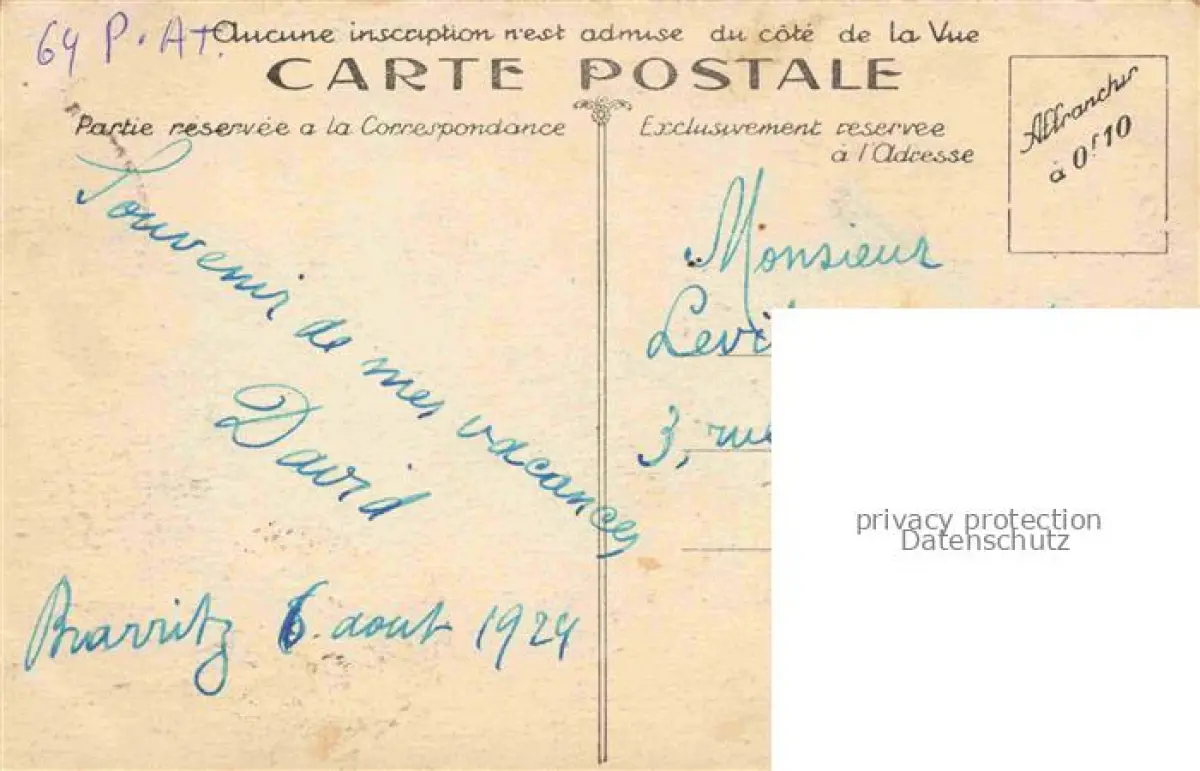 64 P. At.
Aucune inscription n'est admise du côté de la Vue
CARTE POSTALE
Partie réservée a la Correspondance
Exclusivement reservee
à l'Adresse
Affranchir
à 0f10
Souvenir de mes vacances
David
Biarritz 6 aout 1924
Monsieur
3, rue
privacy protection
Datenschutz